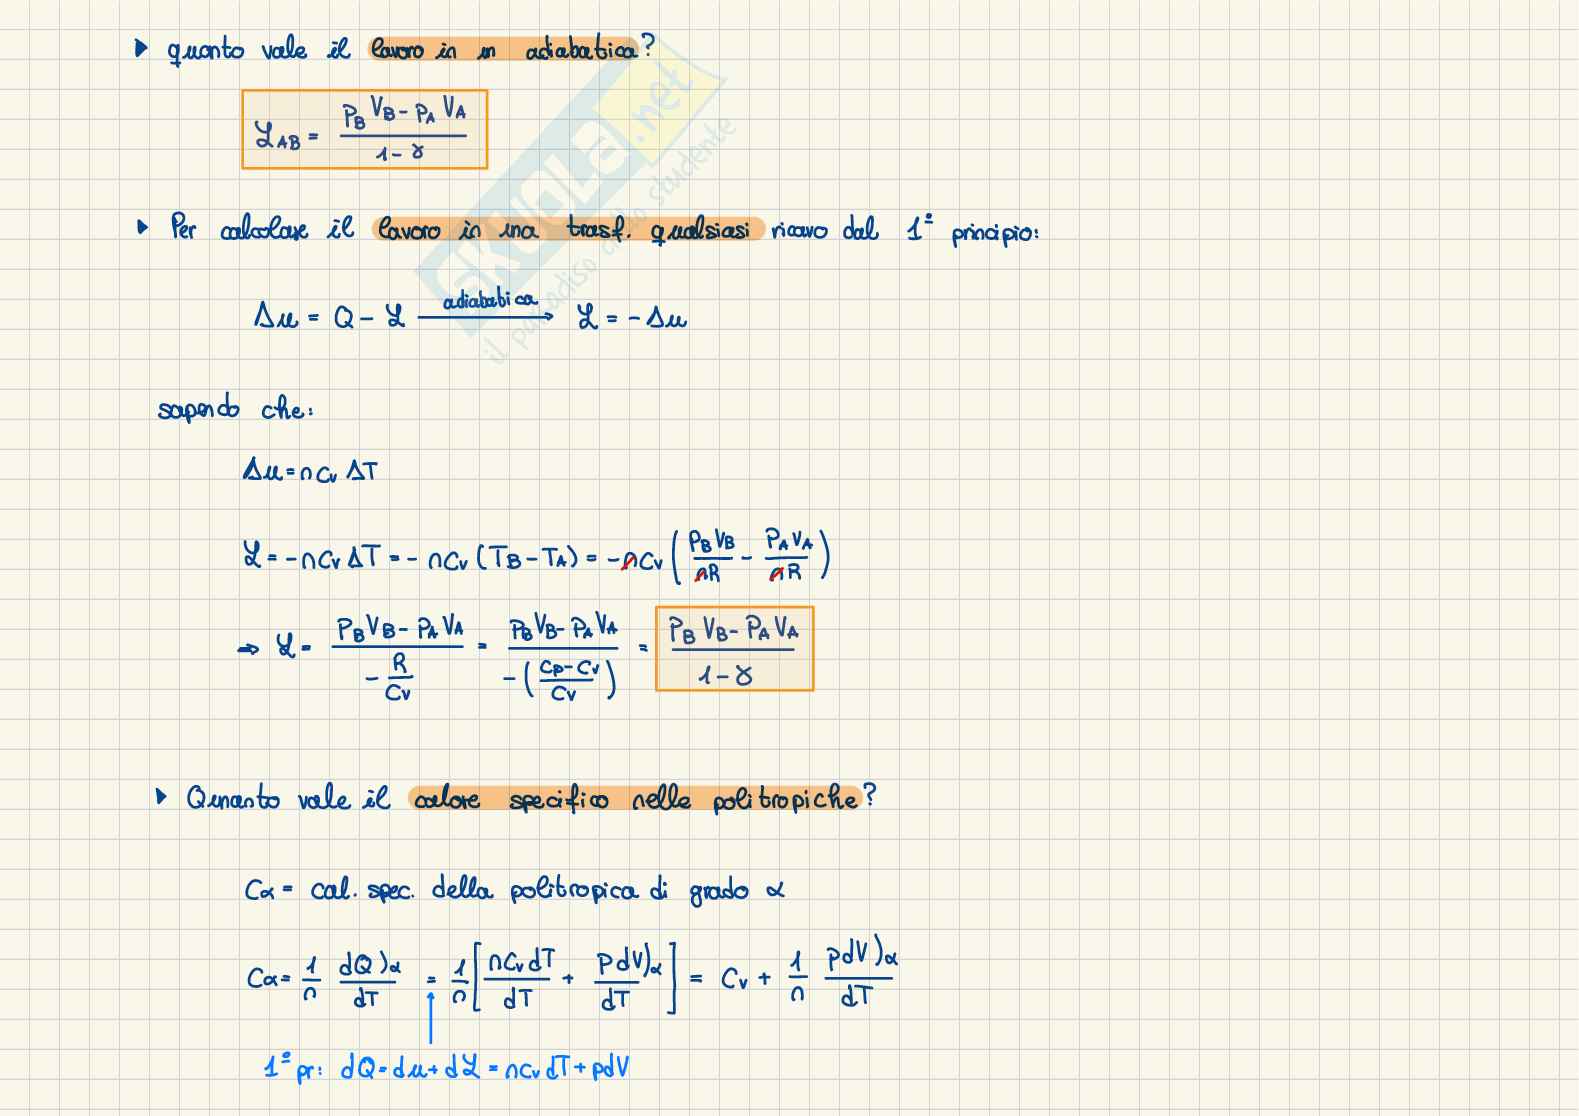 ▶ quanto vale il lavoro in un adiabatica?
ℒ_AB = (P_B V_B - P_A V_A) / (1-γ)
▶ Per calcolare il lavoro in una trasf. qualsiasi ricavo dal 1° principio:
Δu = Q - ℒ —adiabatica→ ℒ = -Δu
sapendo che:
Δu = n c_v ΔT
ℒ = -n c_v ΔT = - n c_v (T_B - T_A) = -n c_v (P_B V_B / nR - P_A V_A / nR)
⇒ ℒ = (P_B V_B - P_A V_A) / (-R/c_v) = (P_B V_B - P_A V_A) / (-((c_p - c_v)/c_v)) = (P_B V_B - P_A V_A) / (1-γ)
▶ Quanto vale il calore specifico nelle politropiche?
C_α = cal. spec. della politropica di grado α
C_α = 1/n dQ)_α / dT = 1/n [n c_v dT / dT + p dV)_α / dT] = C_v + 1/n p dV)_α / dT
1° pr: dQ = du + dℒ = n c_v dT + p dV
skuola.net
il paradiso dello studente